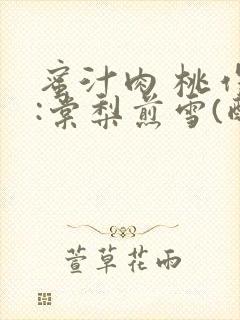 蜜汁肉桃作
:棠梨煎雪(
萱草花雨